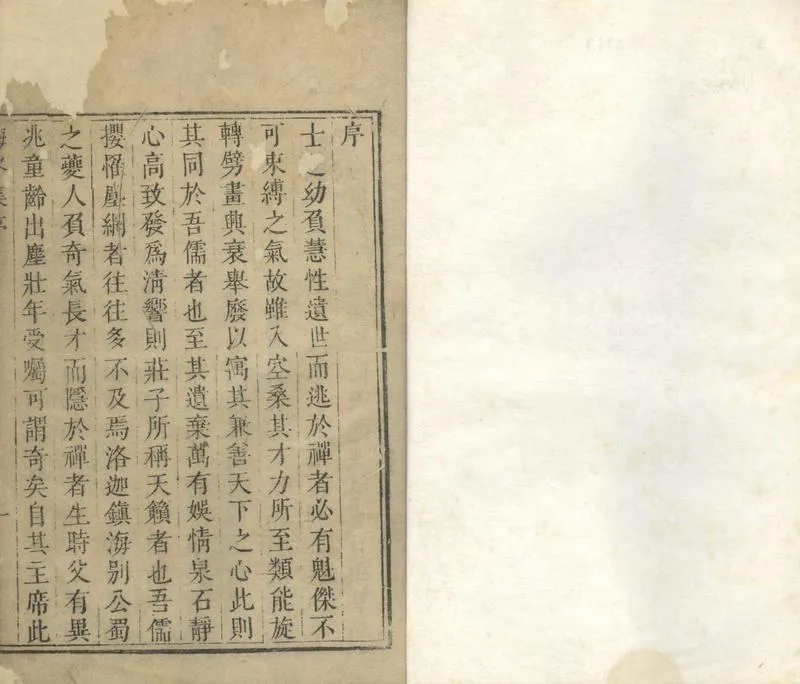 序
士之幼負慧性遺世而逃於禪者必有魁傑不
可束縛之氣故雖入空桑其才力所至類能旋
轉劈畫興衰舉廢以寓其兼善天下之心此則
其同於吾儒者也至其遺棄萬有娛情泉石靜
心高致發爲清響則莊子所稱天籟者也吾儒
攖罹塵網者往往多不及焉洛迦鎮海別公蜀
之夔人負奇氣長才而隱於禪者生時父有異
兆童齡出塵壯年受囑可謂奇矣自其主席此
序
一